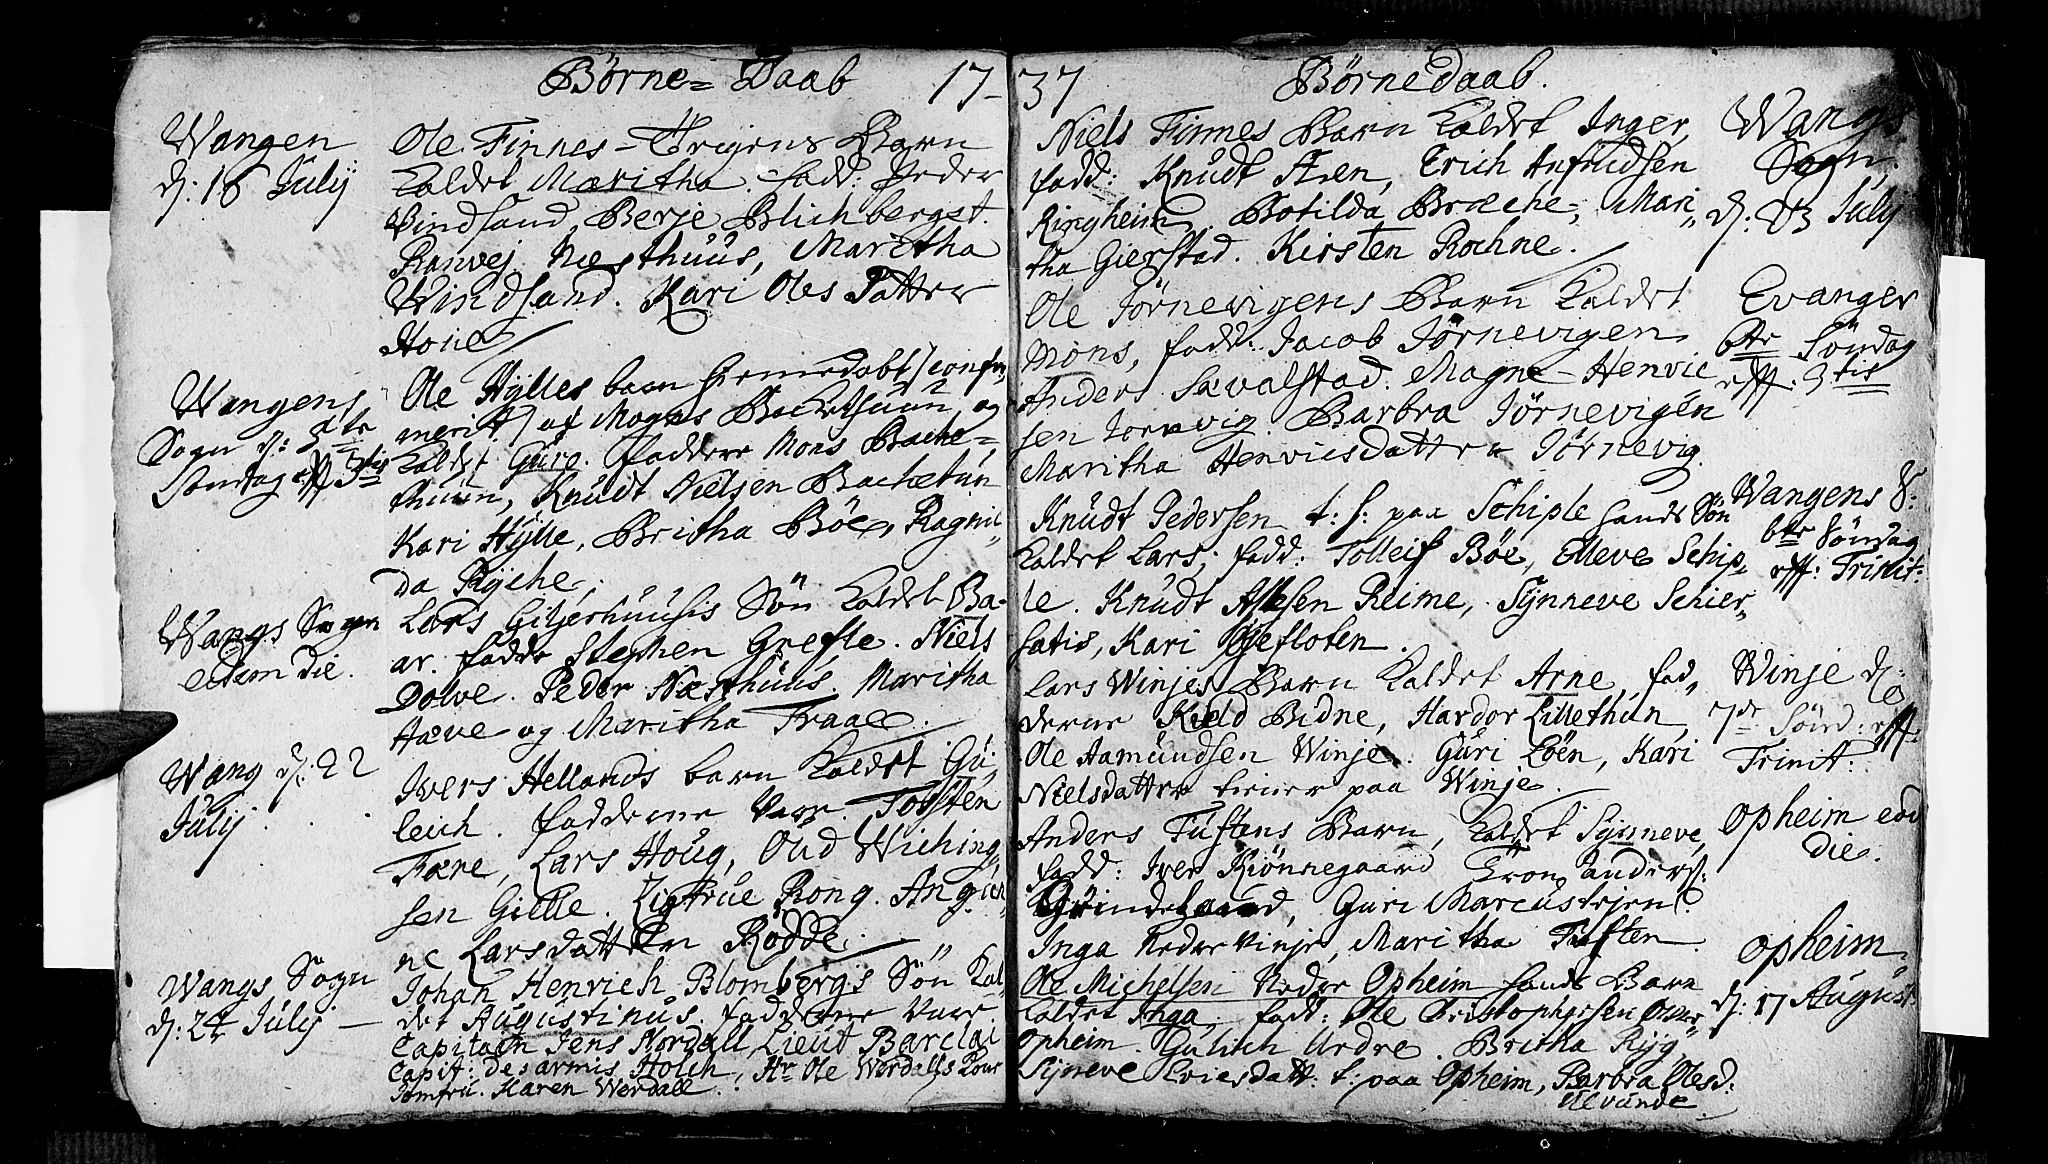 Børne=Daab 17-
Wangen
d: 16 July
Ole Finnes - Barn
Kaldet Maritha. fadd: Peder
Windsand, Berje Blichbergst.
Ranvej Næsthuus, Maritha
Windsand. Kari Oles Datter
Hone
Wangens
Sogn d: 5te
Søndag eff 3tis
Ole Hylles barn hiemedøbt /confir
merit/ af Mogns Bachethuun, og
Kaldet Gure. faddere Mons Bache=
thuun, Knudt Nielsen Bachetun
Kari Hylle, Britha Böe, Ragnil
da Ryche.
Wangs Sogn
eodem die.
Lars Giljerhuusis Sön Kaldet Ba-
ar. fadde Stephen Grefle. Niels
Dolve. Peder Næsthuus. Maritha
Hæve og Maritha Traae.
Wang d: 22
July.
Ivers Hellands barn Kaldet Gu,
leich. fadderne Vare Tosten
Fære, Lars Houg, Oud Wiching,
sen Gielle. Zigtrue Rong. Angier,
ne Larsdatter Rödde.
Wangs Sogn
d: 24 July -
Johan Henrich Blombergs Sön Kal,
det Augustinus. fadderne Vare
Capitain Jens Nordall, Lieut Barclai
Capit: des armis Holch, Hr Ole Werdalls Kone
Jomfru. Karen Werdall.
37 Børnedaab.
Niels Finnes Barn Kaldet Inger,
fadd: Knudt Aen, Erich Anfindsen
Ringheim, Botilda Bræche, Mari,,
tha Gierstad. Kirsten Rochne.
Wangs
Sogn,
d: 23 July
Ole Jörnevigens Barn Kaldet
Mons, fadd: Jacob Jörnevigen
Anders Sævalstad. Magne Henric
sen Jörnevig. Barbra Jörnevigen
Maritha Henricsdatter Jörnevig.
Evanger
6te Söndag
eff: 3tis
Knudt Pedersen t: h: paa Schiple hands Sön
Kaldet Lars; fadd: Tolleif Böe, Elleve Schip,
le. Knudt Allesen Reime, Synneve Schier,
satis, Kari Gjefloten.
Wangens S:
6te Söndag
eff: Trinit:
Lars Winjes Barn Kaldet Arne, fad,,
derne Kield Bidne, Hardor Lillethun,
Ole Aamundsen Winje. Guri Löen, Kari
Nielsdatter tiener paa Winje.
Winje d:
7de Sönd: eff:
Trinit:
Anders Tuftens Barn, Kaldet Synneve,
fadd: Iver Kiönnegaard Eron Anders:
Grindeland, Guri Marcusteien
Inga Nedre Vinje, Maritha Tuften.
Opheim eod
die.
Ole Michelsen Nedre Opheim hands Barn
Kaldet Inga, fadd: Ole Christophersen Over
Opheim. Gulich Urdre. Britha Ryg
Syneve Eviesdatt: t: paa Opheim, Barbra Olesd:
Ulvunde.
Opheim
d: 17 August